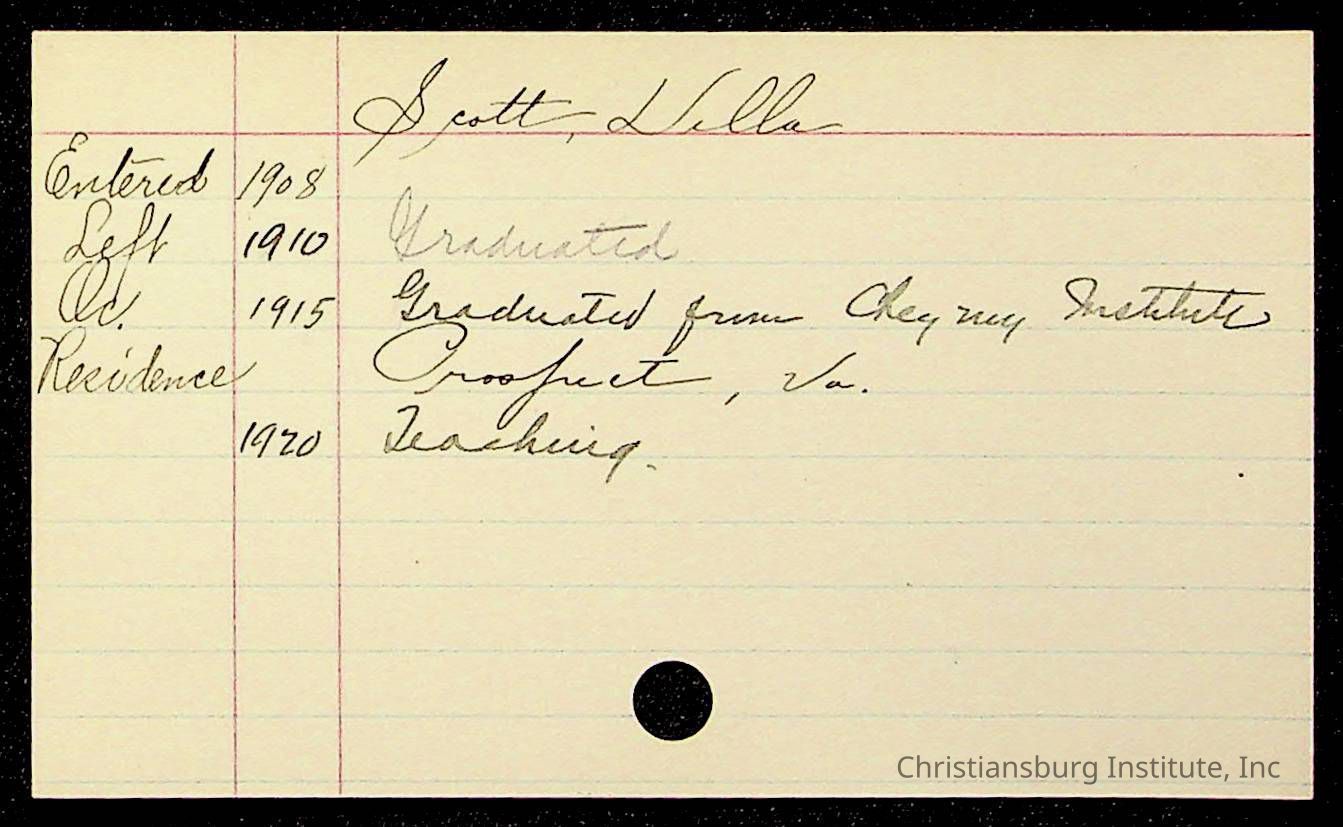 Scott, Willa
Entered 1908
Left 1910 Graduated
Oc. 1915 Graduated from Cheyney Institute
Residence Prospect, Va.
1920 Teaching.
Christiansburg Institute, Inc